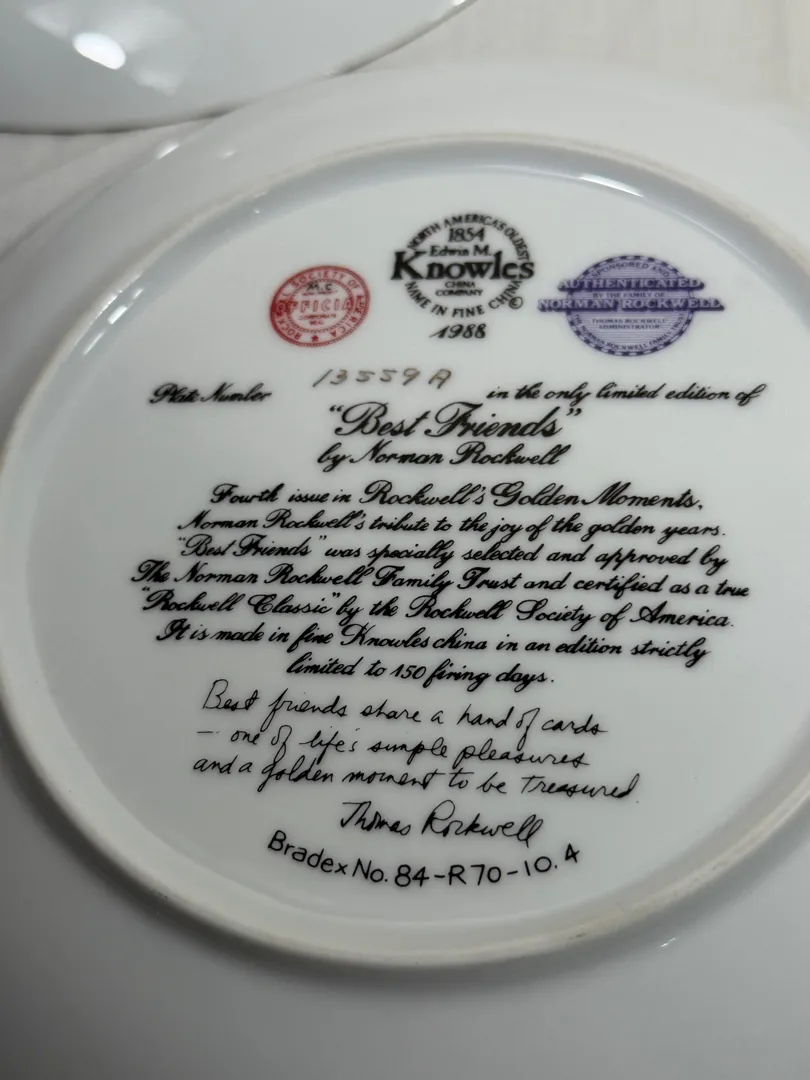 NORTH AMERICA'S OLDEST
1854
Edwin M.
Knowles
CHINA
COMPANY
NAME IN FINE CHINA
©
1988
ROCKWELL SOCIETY OF AMERICA
M.C.
OFFICIAL
SPONSORED AND
AUTHENTICATED
BY THE FAMILY OF
NORMAN ROCKWELL
THOMAS ROCKWELL
ADMINISTRATOR
NORMAN ROCKWELL FAMILY TRUST
Plate Number 13559A in the only limited edition of
"Best Friends"
by Norman Rockwell
Fourth issue in Rockwell's Golden Moments,
Norman Rockwell's tribute to the joy of the golden years.
"Best Friends" was specially selected and approved by
The Norman Rockwell Family Trust and certified as a true
"Rockwell Classic" by the Rockwell Society of America.
It is made in fine Knowles china in an edition strictly
limited to 150 firing days.
Best friends share a hand of cards
— one of life's simple pleasures
and a golden moment to be treasured.
Thomas Rockwell
Bradex No. 84-R70-10.4